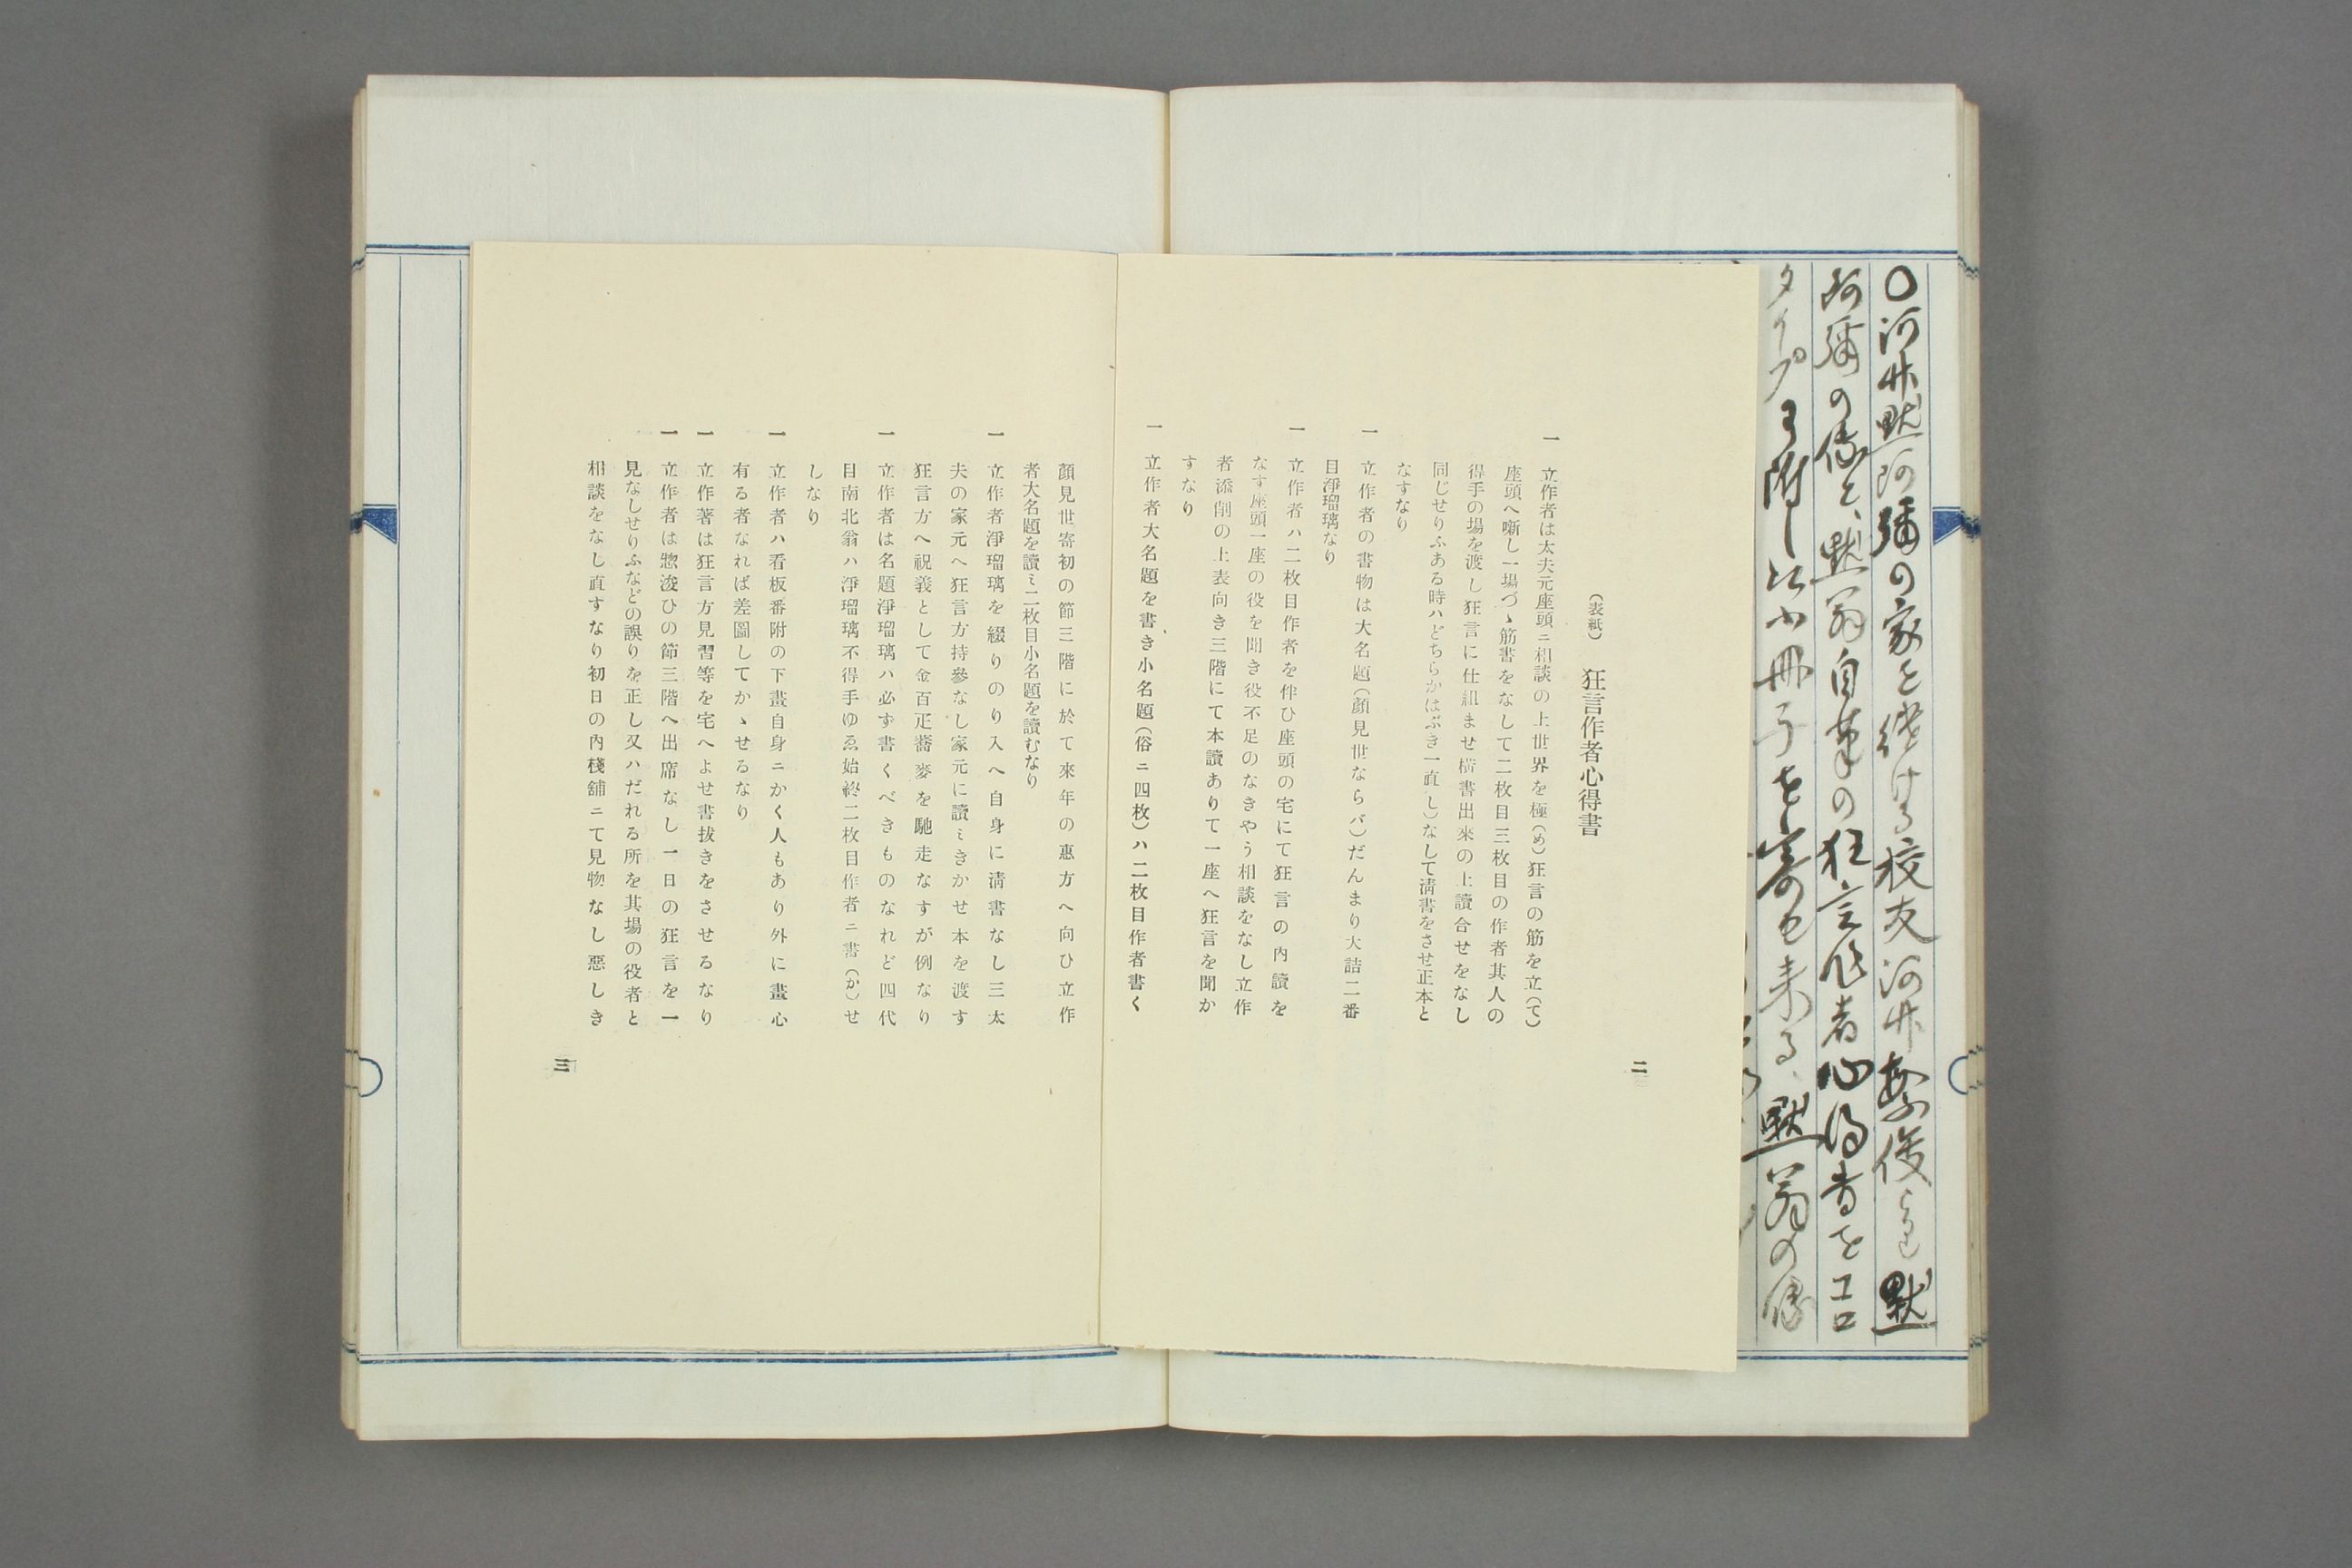 〇河竹黙阿彌の家を継ける校友河竹繁俊から黙
阿彌の像と、黙翁自筆の狂言作者心得書をコロ
タイプに附し以小冊子を寄セ来る、黙翁の像
(表紙) 狂言作者心得書
一 立作者は太夫元座頭ニ相談の上世界を極(め)狂言の筋を立(て)
座頭へ噺し一場づゝ筋書をなして二枚目三枚目の作者其人の
得手の場を渡し狂言に仕組ませ橫書出來の上讀合せをなし
同じせりふある時ハどちらかはぶき一直(し)なして淸書をさせ正本と
なすなり
一 立作者の書物は大名題(顔見世ならバ)だんまり大詰二番
目淨瑠璃なり
一 立作者ハ二枚目作者を伴ひ座頭の宅にて狂言の內讀を
なす座頭一座の役を聞き役不足のなきやう相談をなし立作
者添削の上表向き三階にて本讀ありて一座へ狂言を聞か
すなり
一 立作者大名題を書き小名題(俗ニ四枚)ハ二枚目作者書く
二
顔見世寄初の節三階に於て來年の惠方へ向ひ立作
者大名題を讀ミ二枚目小名題を讀むなり
一 立作者淨瑠璃を綴りのり入へ自身に淸書なし三太
夫の家元へ狂言方持參なし家元に讀ミきかせ本を渡す
狂言方へ祝義として金百疋蕎麥を馳走なすが例なり
一 立作者は名題淨瑠璃ハ必ず書くべきものなれど四代
目南北翁ハ淨瑠璃不得手ゆゑ始終二枚目作者ニ書(か)せ
しなり
一 立作者ハ看板番附の下畫自身ニかく人もあり外に畫心
有る者なれば差圖してかゝせるなり
一 立作著は狂言方見習等を宅へよせ書拔きをさせるなり
一 立作者は惣浚ひの節三階へ出席なし一日の狂言を一
見なしせりふなどの誤りを正し又ハだれる所を其場の役者と
相談をなし直すなり初日の內棧舖ニて見物なし惡しき
三